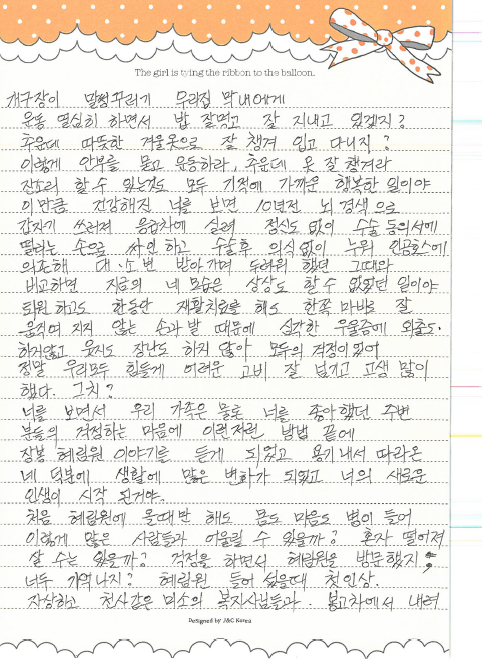 The girl is tying the ribbon to the balloon.
개구장이 말썽꾸러기 우리집 막내에게
운동 열심히 하면서 밥 잘먹고 잘 지내고 있겠지?
추운데 따뜻한 겨울옷으로 잘 챙겨 입고 다니지?
이렇게 안부를 묻고 운동하라, 추운데 옷 잘 챙겨라
잔소리 할 수 있는것도 모두 기적에 가까운 행복한 일이야
이만큼 건강해진 너를 보면 10년전 뇌 경색으로
갑자기 쓰러져 응급차에 실려 정신도 없이 수술 동의서에
떨리는 손으로 싸인하고 수술후 의식없이 누워 인공호스에
의존해 대·소변 받아가며 두려워 했던 그때와
비교하면 지금의 네 모습은 상상도 할 수 없었던 일이야
퇴원하고도 한동안 재활치료를 해도 한쪽 마비로 잘
움직여 지지 않는 손과 발 때문에 심각한 우울증에 외출도.
하지않고 웃지도 장난도 하지 않아 모두의 걱정이었어
정말 우리모두 힘들게 어려운 고비 잘 넘기고 고생 많이
했다. 그치?
너를 보면서 우리 가족은 물론 너를 좋아했던 주변
분들의 걱정하는 마음에 이런저런 방법 끝에
장봉 혜림원 이야기를 듣게 되었고 용기내서 따라온
네 덕분에 생활에 많은 변화가 되었고 너의 새로운
인생이 시작 된거야.
처음 혜림원에 올때만 해도 몸도 마음도 병이 들어
이렇게 많은 사람들과 어울릴 수 있을까? 혼자 떨어져
살 수는 있을까? 걱정을 하면서 혜림원을 방문했지;
너두 기억나지? 혜림원 들어 섰을때 첫인상.
자상하고 천사같은 미소의 복지사님들과. 봉고차에서 내려
Designed by J&C Korea